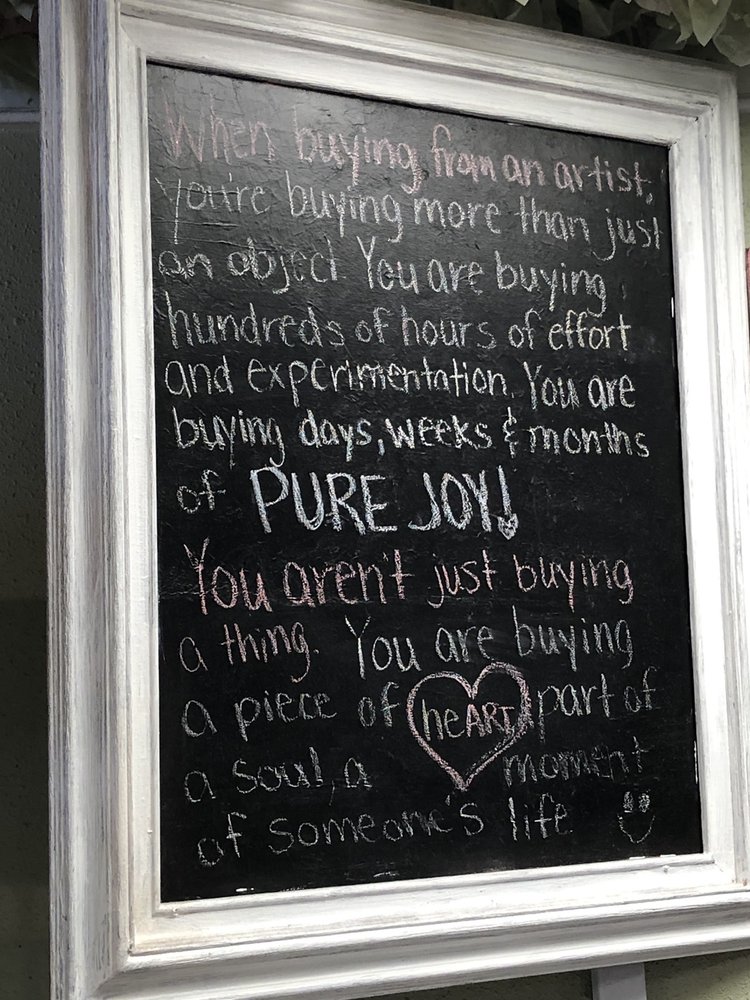 When buying from an artist,
you're buying more than just
an object You are buying
hundreds of hours of effort
and experimentation. You are
buying days, weeks & months
of PURE JOY!
You aren't just buying
a thing. You are buying
a piece of heART, part of
a soul, a moment
of someone's life